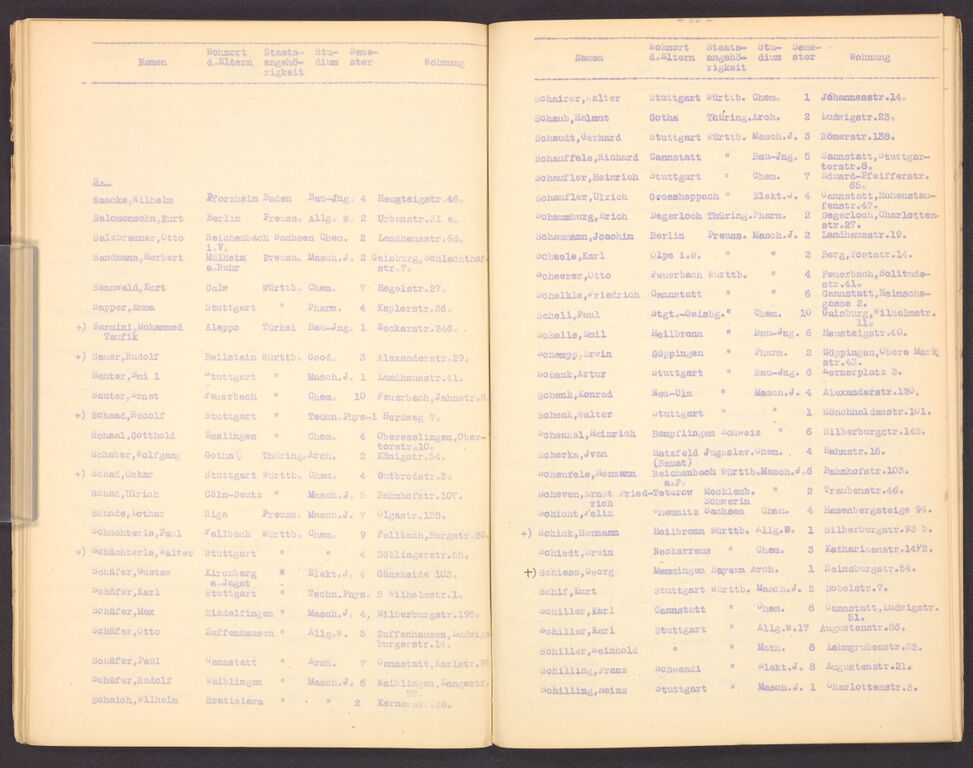 Wohnort Staats- Stu- Seme-
Namen d.Eltern angehö- dium ster Wohnung
rigkeit
S.
Saacke,Wilhelm Pforzheim Baden Bau-Jng. 4 Heusteigstr.46.
Salomonsohn,Kurt Berlin Preuss. Allg.W. 2 Urbanstr.31
Salzbrenner,Otto Reichenbach Sachsen Chem. 2 Landhausstr.68.
i.V.
Sandmann,Herbert Mülheim Preuss. Masch.J. 2 Gaisburg,Schlachthof-
a.Ruhr str.7.
Sannwald,Kurt Calw Württb. Chem. 7 Hegelstr.27.
Sapper,Emma Stuttgart " Pharm. 4 Keplerstr.36.
+) Sarmini,Mohammed Aleppo Türkei Bau-Jng. 1 Neckarstr.246.
Taufik
+) Sauer,Rudolf Beilstein Württb. Geod. 3 Alexanderstr.29.
Sauter,Emil Stuttgart " Masch.J. 1 Landhausstr.41.
Sauter,Ernst Feuerbach " Chem. 10 Feuerbach,Jahnstr.
+) Schaad,Rudolf Stuttgart " Techn.Phys.1 Herdweg 7.
Schaal,Gotthold Esslingen " Chem. 4 Oberesslingen,Ober-
torstr.10.
Schaber,Wolfgang Gotha Thüring.Arch. 2 Königstr.54.
+) Schad,Oskar Stuttgart Württb. Chem. 4 Gutbrodstr.3.
Schad,Ulrich Cöln-Deutz " Masch.J. 5 Bahnhofstr.107.
Schade,Lothar Riga Preuss. Masch.J. 7 Olgastr.128.
Schächterle,Paul Fellbach Württb. Chem. 9 Fellbach,Burgstr.20.
+) Schächterle,Walter Stuttgart " " 4 Böblingerstr.65.
Schäfer,Gustav Kirchberg " Elekt.J. 4 Gänsheide 103.
a.Jagst
Schäfer,Karl Stuttgart " Techn.Phys. 5 Wilhelmstr.1.
Schäfer,Max Sindelfingen " Masch.J. 4, Silberburgstr.195.
Schäfer,Otto Zuffenhausen " Allg.W. 5 Zuffenhausen,Ludwigs-
burgerstr.14.
Schäfer,Paul Cannstatt " Arch. 7 Cannstatt,Karlstr.
Schäfer,Rudolf Waiblingen " Masch.J. 6 Waiblingen,Langestr.
22.
Schaich,Wilhelm Bratislawa " " 2 Kernerstr.28.
Wohnort Staats- Stu- Seme-
Namen d.Eltern angehö- dium ster Wohnung
rigkeit
Schairer,Walter Stuttgart Württb. Chem. 1 Johannesstr.14.
Schaub,Helmut Gotha Thüring.Arch. 2 Ludwigstr.23.
Schaudt,Gerhard Stuttgart Württb. Masch.J. 3 Römerstr.138.
Schauffele,Richard Cannstatt " Bau-Jng. 5 Cannstatt,Stuttgar-
terstr.8.
Schaufler,Heinrich Stuttgart " Chem. 7 Eduard-Pfeifferstr.
65.
Schaufler,Ulrich Grossheppach " Elekt.J. 4 Cannstatt,Hohenstau-
fenstr.47.
Schaumburg,Erich Degerloch Thüring.Pharm. 2 Degerloch,Charlotten-
str.27.
Schaumann,Joachim Berlin Preuss. Masch.J. 2 Landhausstr.19.
Scheele,Karl Olpe i.W. " " 2 Berg,Poststr.14.
Scheerer,Otto Feuerbach Württb. " 4 Feuerbach,Solitude-
str.41.
Schelkle,Friedrich Cannstatt " " 6 Cannstatt,Heinsche-
gasse 2.
Schell,Paul Stgt.-Gaisbg." Chem. 10 Gaisburg,Wilhelmstr.
11.
Schelle,Emil Heilbronn " Bau-Jng. 6 Heusteigstr.40.
Schempp,Erwin Göppingen " Pharm. 2 Göppingen,Obere Mark
str.43.
Schenk,Artur Stuttgart " Bau-Jng. 8 Kernerplatz 3.
Schenk,Konrad Neu-Ulm " Masch.J. 4 Alexanderstr.120.
Schenk,Walter Stuttgart " " 1 Mönchhaldenstr.101.
Schenkel,Heinrich Bempflingen Schweiz " 6 Silberburgstr.145.
Scherka,Jvan Hatzfeld Jugoslav.Chem. 4 Bahnstr.16.
(Banat)
Scheufele,Hermann Reichenbach Württb.Masch.J.6 Bahnhofstr.103.
a.F.
Scheven,Ernst Fried-Teterow Mecklenb. " 2 Traubenstr.46.
rich Schwerin
Schicht,Felix Chemnitz Sachsen Chem. 4 Hasenbergsteige 94.
+) Schick,Hermann Heilbronn Württb. Allg.W. 1 Silberburgstr.93 b.
Schiedt,Erwin Neckarrems " Chem. 3 Katharinenstr.14½
+) Schiess,Georg Memmingen Bayern Arch. 1 Reinsburgstr.54.
Schif,Kurt Stuttgart Württb. Masch.J. 2 Dobelstr.7.
Schiller,Karl Cannstatt " Chem. 8 Cannstatt,Ludwigstr.
51.
Schiller,Karl Stuttgart " Allg.W.17 Augustenstr.86.
Schiller,Reinhold " " Math. 8 Lehmgrubenstr.32.
Schilling,Franz Schwendi " Elekt.J. 8 Augustenstr.21.
Schilling,Heinz Stuttgart " Masch.J. 1 Charlottenstr.3.